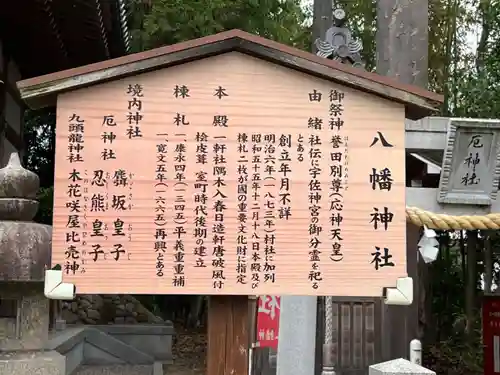 八幡神社
御祭神 誉田別尊(応神天皇)
由緒 社伝に宇佐神宮の御分霊を祀る
とある
創立年月不詳
明治六年(一八七三年)村社に加列
昭和五十五年十二月十八日本殿及び
棟札二枚が国の重要文化財に指定
本殿 一軒社隅木入春日造唐破風付
桧皮葺 室町時代後期の建立
棟札 一、康永四年(一三四五)平義重重補
一、寛文五年(一六六五)再興とある
境内神社
厄神社 犇坂皇子
忍熊皇子
九頭龍神社 木花咲屋比売神
厄神社